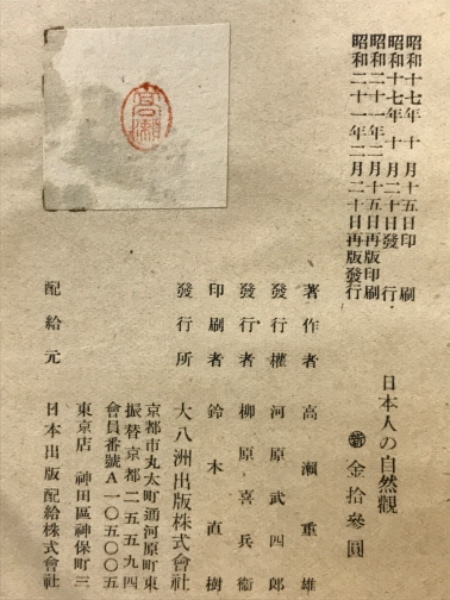 昭和十七年十月十五日印刷
昭和十七年十月二十日發行
昭和二十一年二月十五日再版印刷
昭和二十一年二月二十日再版發行
日本人の自然觀
新 金拾參圓
著作者 高瀨重雄
發行權 河原武四郎
發行者 柳原喜兵衞
印刷者 鈴木直樹
發行所 大八洲出版株式會社
京都市丸太町通河原町東
振替京都二五五九四
會員番號A一〇五〇〇五
東京店 神田區神保町三
配給元 日本出版配給株式會社
高瀨